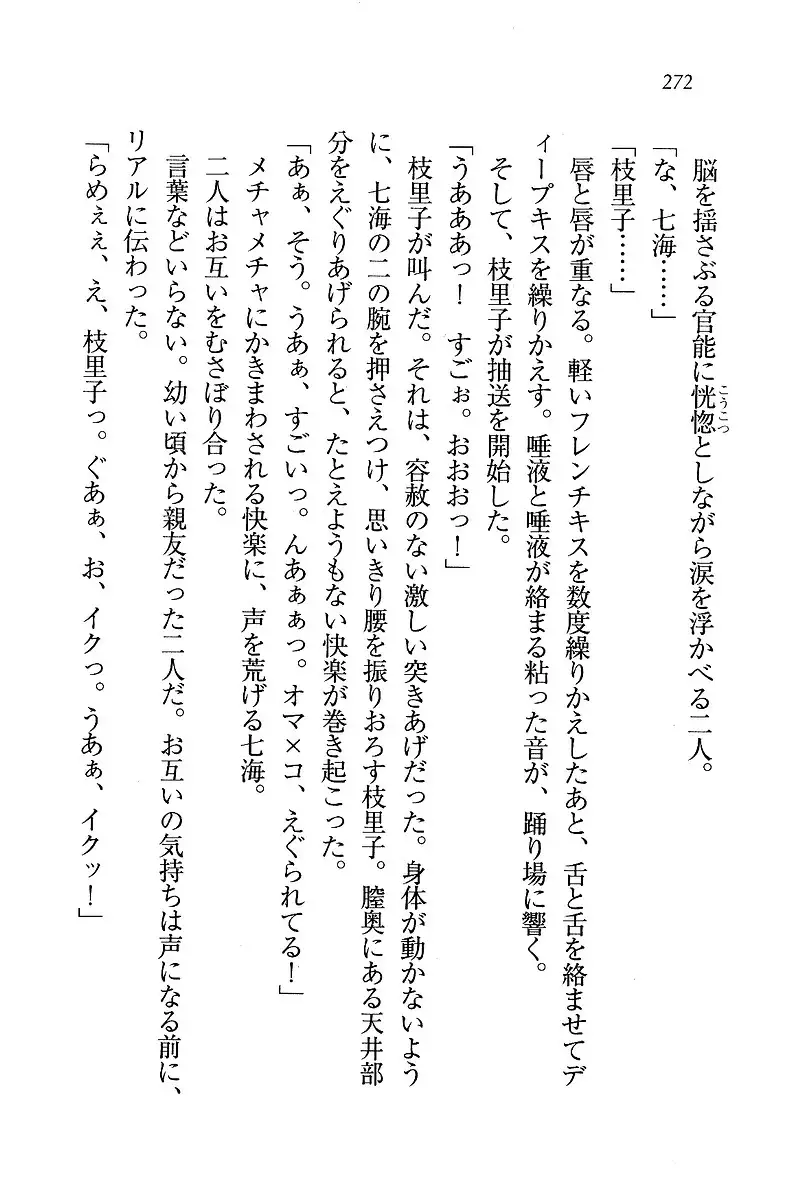 272
脳を揺さぶる官能に恍惚としながら涙を浮かべる二人。
こうこつ
「な、七海……」
「枝里子……」
唇と唇が重なる。軽いフレンチキスを数度繰りかえしたあと、舌と舌を絡ませてデ
ィープキスを繰りかえす。唾液と唾液が絡まる粘った音が、踊り場に響く。
そして、枝里子が抽送を開始した。
「うあああっ！　すごぉ。おおおっ！」
枝里子が叫んだ。それは、容赦のない激しい突きあげだった。身体が動かないよう
に、七海の二の腕を押さえつけ、思いきり腰を振りおろす枝里子。膣奥にある天井部
分をえぐりあげられると、たとえようもない快楽が巻き起こった。
「あぁ、そう。うあぁ、すごいっ。んあぁぁっ。オマ×コ、えぐられてる！」
メチャメチャにかきまわされる快楽に、声を荒げる七海。
二人はお互いをむさぼり合った。
言葉などいらない。幼い頃から親友だった二人だ。お互いの気持ちは声になる前に、
リアルに伝わった。
「らめぇぇ、え、枝里子っ。ぐあぁ、お、イクっ。うあぁ、イクッ！」